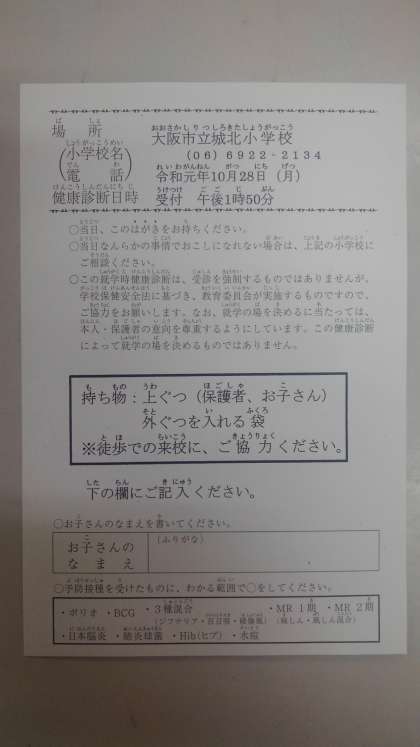 場所 大阪市立城北小学校
(小学校名) (06) 6922-2134
(電話) 令和元年10月28日(月)
健康診断日時 受付 午後1時50分
○当日、このはがきをお持ちください。
○当日なんらかの事情でおこしになれない場合は、上記の小学校に
ご相談ください。
○この就学時健康診断は、受診を強制するものではありませんが、
学校保健安全法に基づき、教育委員会が実施するものですので、
ご協力をお願いします。なお、就学の場を決めるに当たっては、
本人・保護者の意向を尊重するようにしています。この健康診断
によって就学の場を決めるものではありません。
持ち物:上ぐつ(保護者、お子さん)
外ぐつを入れる袋
※徒歩での来校に、ご協力ください。
下の欄にご記入ください。
○お子さんのなまえを書いてください。
お子さんの (ふりがな)
なまえ
○予防接種を受けたものに、わかる範囲で○をしてください。
・ポリオ ・BCG ・3種混合 ・MR1期 ・MR2期
(ジフテリア・百日咳・破傷風) (麻しん・風しん混合)
・日本脳炎 ・肺炎球菌 ・Hib(ヒブ) ・水痘